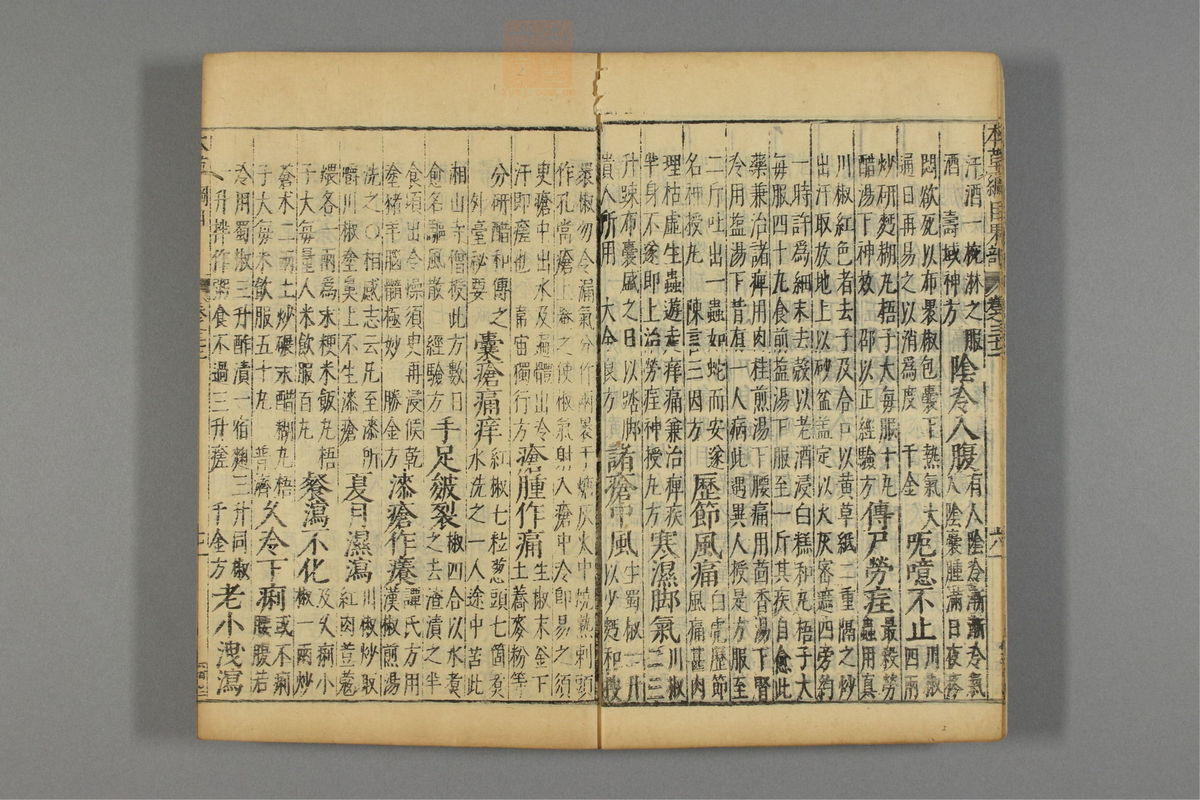 本草綱目果部 卷三十二 六
汗酒一椀淋之服
酒 壽域神方
陰冷入腹
有人陰冷漸漸冷氣
入陰囊腫滿日夜疼
悶欲死以布裹椒包囊下熱氣大
通日再易之以消爲度 千金
呃噫不止
川椒
四兩
炒研麪糊丸梧子大每服十丸
醋湯下神效 邵以正經驗方
傳尸勞疰
最殺勞
蟲用真
川椒紅色者去子及合口以黄草紙二重隔之炒
出汗取放地上以砂盆盖定以火灰密遮四旁約
一時許爲細末去殼以老酒浸白糕和丸梧子大
每服四十丸食前盐湯下服至一斤其疾自愈此
藥兼治諸痺用肉桂煎湯下腰痛用茴香湯下腎
冷用盐湯下昔有一人病此遇異人授是方服至
二斤吐出一蟲如蛇而安遂
名神授丸 陳言三因方
歷節風痛
白虎歷節
風痛甚肉
理枯虛生蟲遊走痒痛兼治痺疾
半身不遂即上治勞疰神授丸方
寒濕脚氣
川椒
二三
升踈布囊盛之日以踏脚
貴人所用 大全良方
諸瘡中風
生蜀椒一升
以少麪和搜
裹椒勿令漏氣分作兩裹于塘灰火中燒熟剌頭
作孔當瘡上罨之使椒氣射入瘡中冷即易之須
臾瘡中出水及遍體出冷
汗即瘥也 韋宙獨行方
瘡腫作痛
生椒末釜下
土蕎麥粉等
分研醋和傅之
外臺秘要
囊瘡痛痒
紅椒七粒葱頭七箇煑
水洗之一人途中苦此
相山寺僧授此方數日
愈名驅風散 經驗方
手足皴裂
椒四合以水煑
之去渣漬之半
食頃出令燥須臾再浸候乾
塗猪羊腦髓極妙 勝金方
漆瘡作癢
譚氏方用
漢椒煎湯
洗之○相感志云凡至漆所
嚼川椒塗鼻上不生漆瘡
夏月濕瀉
川椒炒取
紅肉荳蔲
煨各一兩爲末粳米飯丸梧
子大每量人米飲服百丸
餐瀉不化
及久痢小
椒一兩炒
蒼术二兩土炒碾末醋糊丸梧
子大每米飲服五十丸 普濟
久冷下痢
或不痢
腰腹苦
冷用蜀椒三升酢漬一宿麴三升同椒
一升拌作粥食不過三升瘥 千金方
老小洩瀉